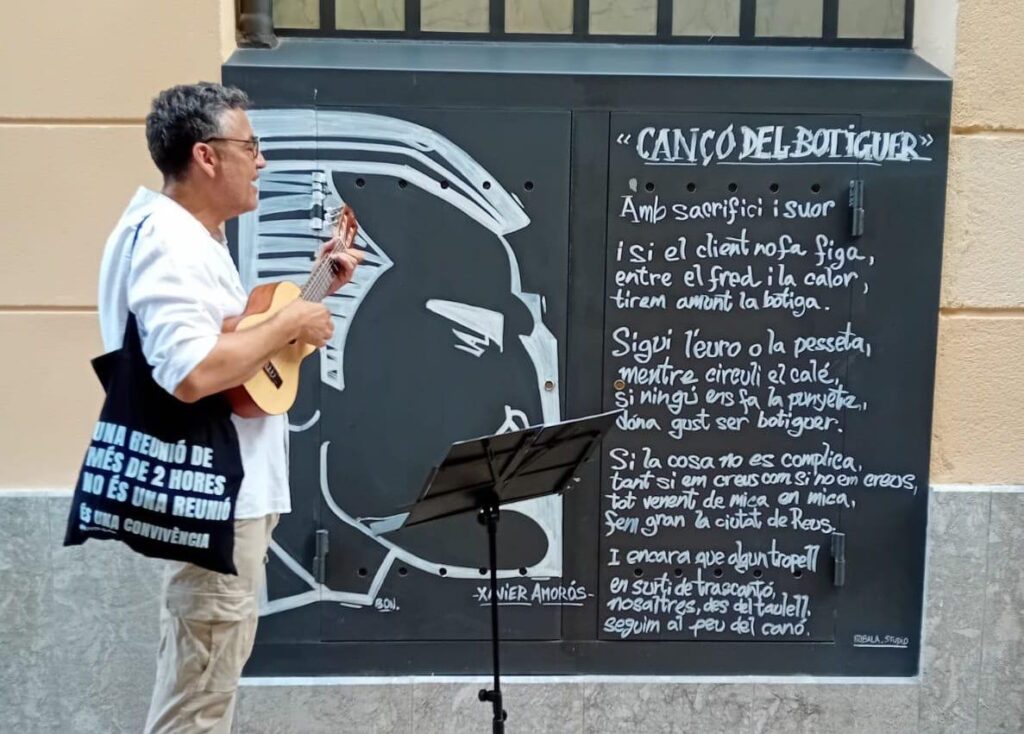 UNA REUNIÓ DE
MÉS DE 2 HORES
NO ÉS UNA REUNIÓ
ÉS UNA CONVIVÈNCIA
BOV.
-XAVIER AMORÓS-
“CANÇÓ DEL BOTIGUER”
Amb sacrifici i suor
i si el client no fa figa,
entre el fred i la calor,
tirem amunt la botiga.
Sigui l'euro o la pesseta,
mentre circuli el calé,
si ningú ens fa la punyeta,
dóna gust ser botiguer.
Si la cosa no es complica,
tant si em creus com si no em creus,
tot venent de mica en mica,
fem gran la ciutat de Reus.
I encara que algun tropell
en surti de trascantó,
nosaltres, des del taulell,
seguim al peu del canó.